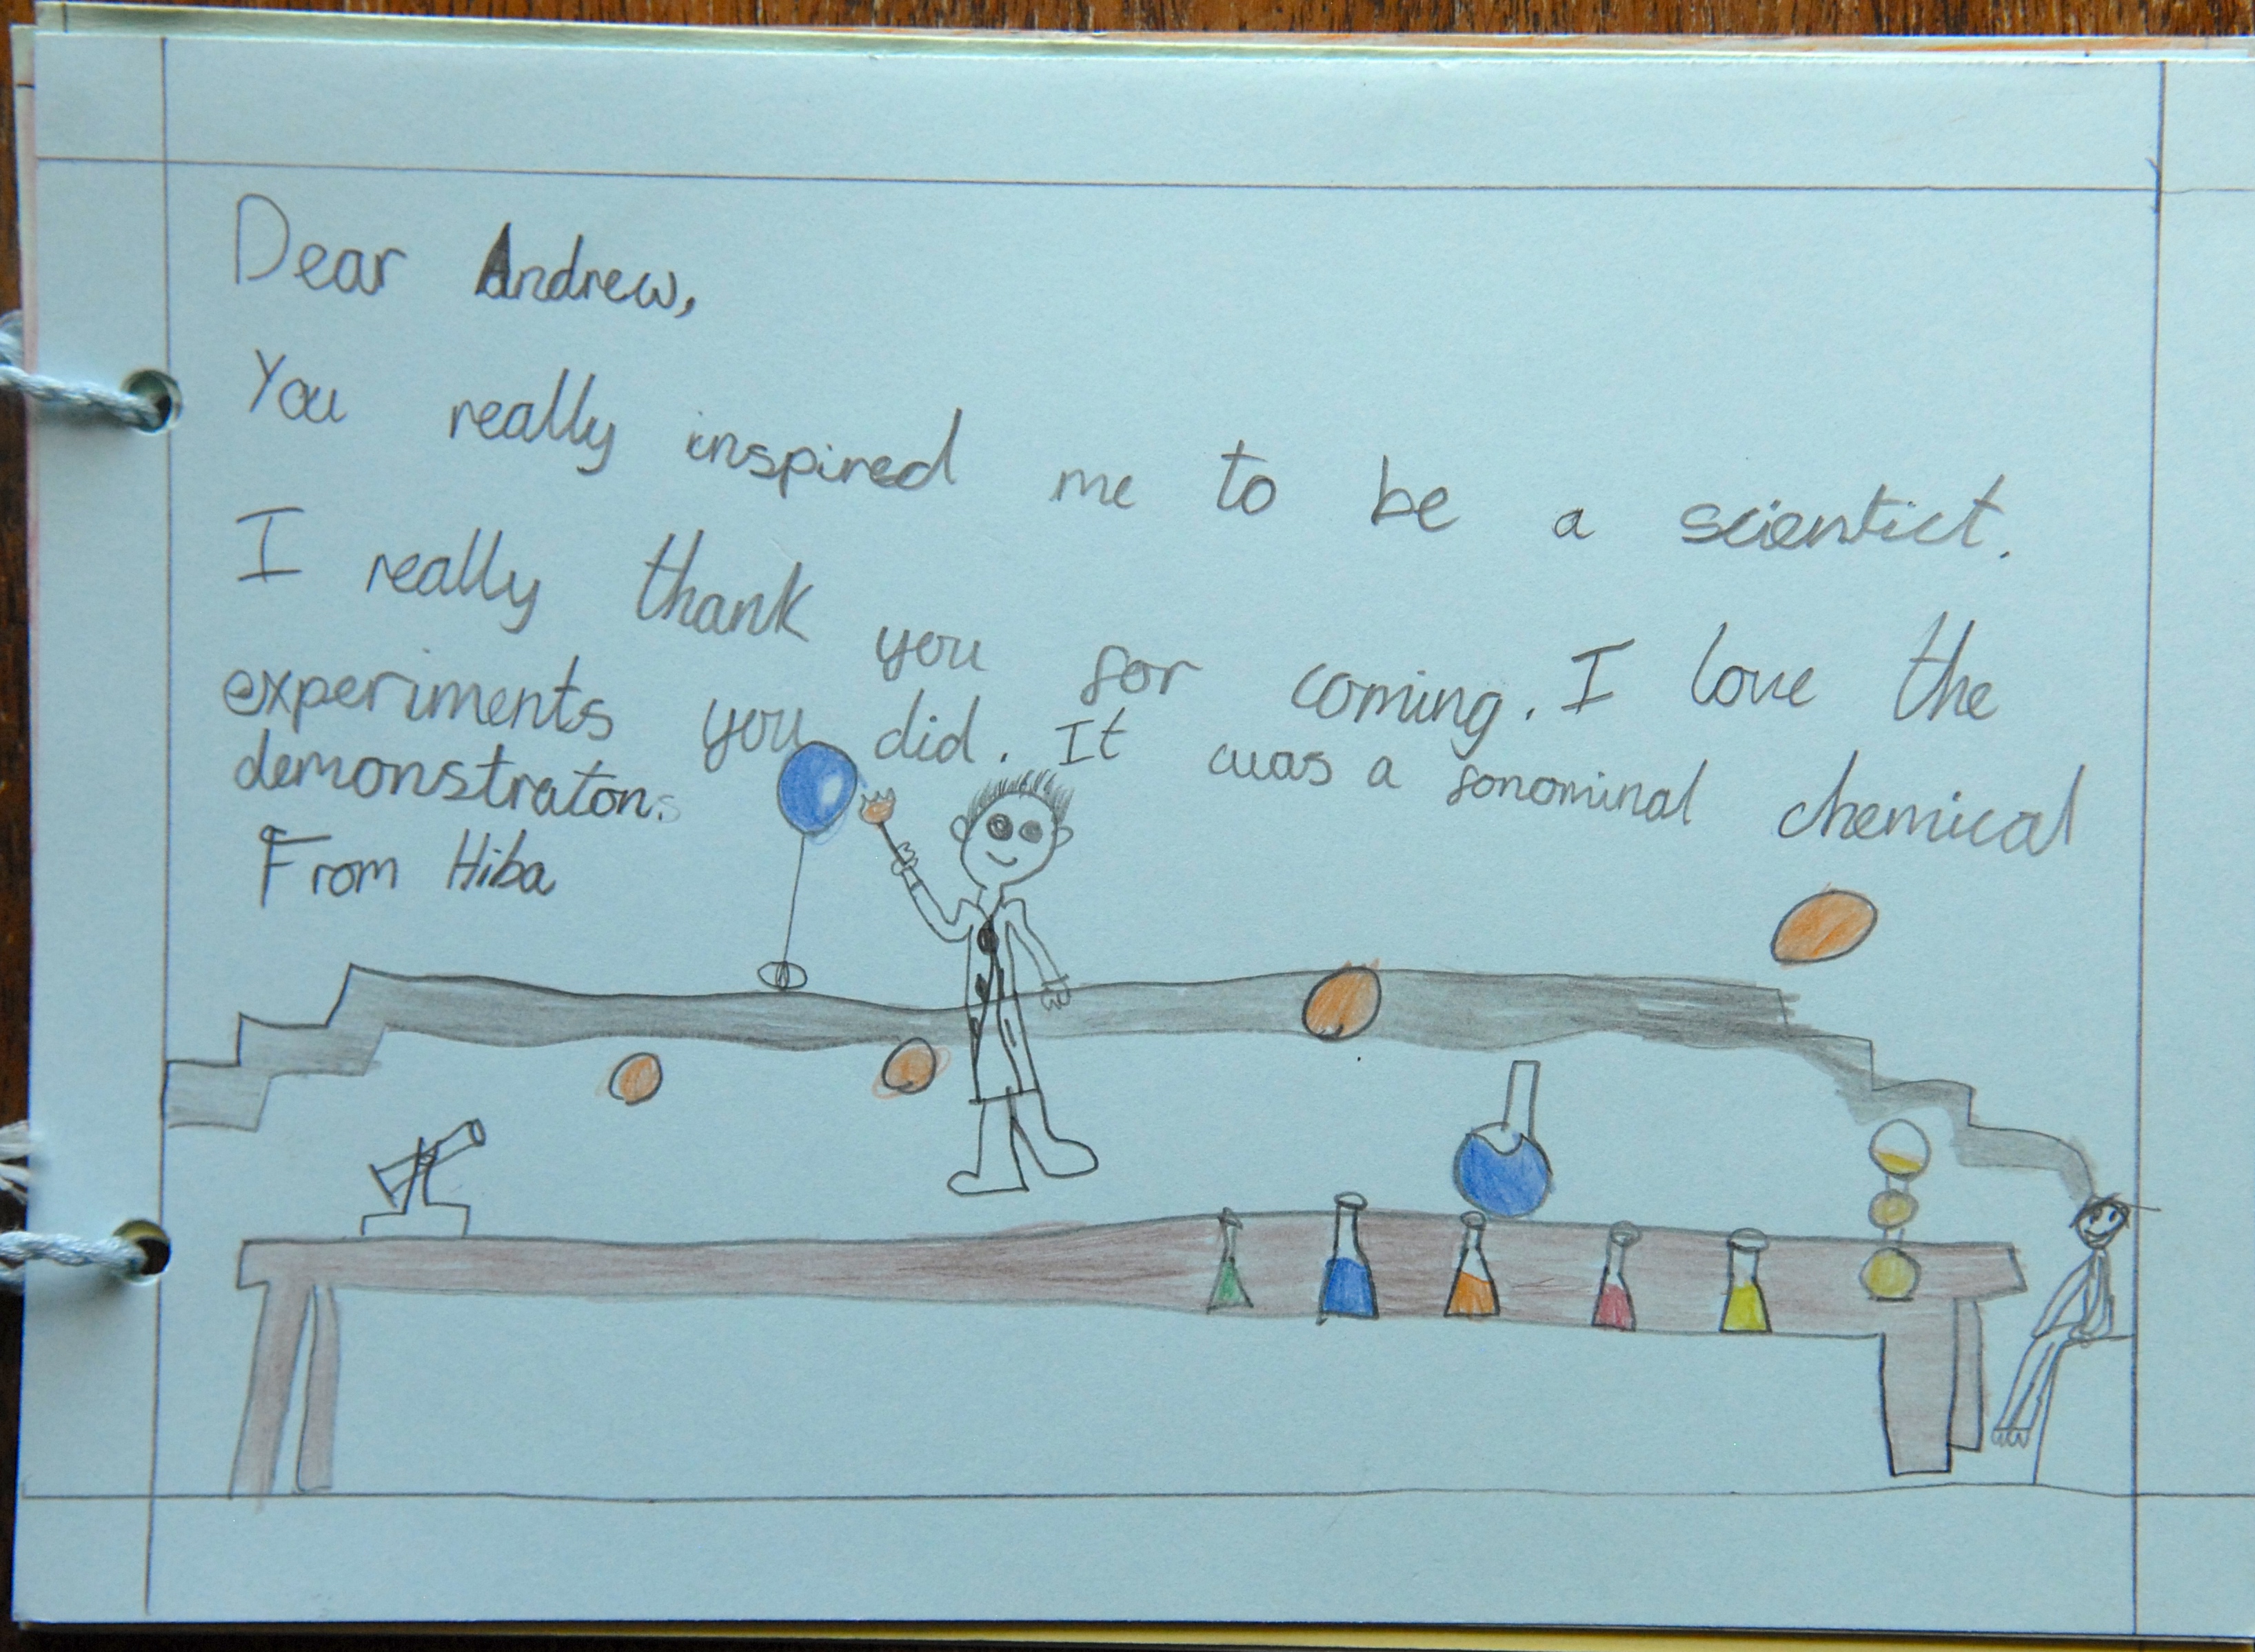 Dear Andrew,
You really inspired me to be a scientict.
I really thank you for coming. I love the
experiments you did. It was a fonominal chemical
demonstraton.
From Hiba